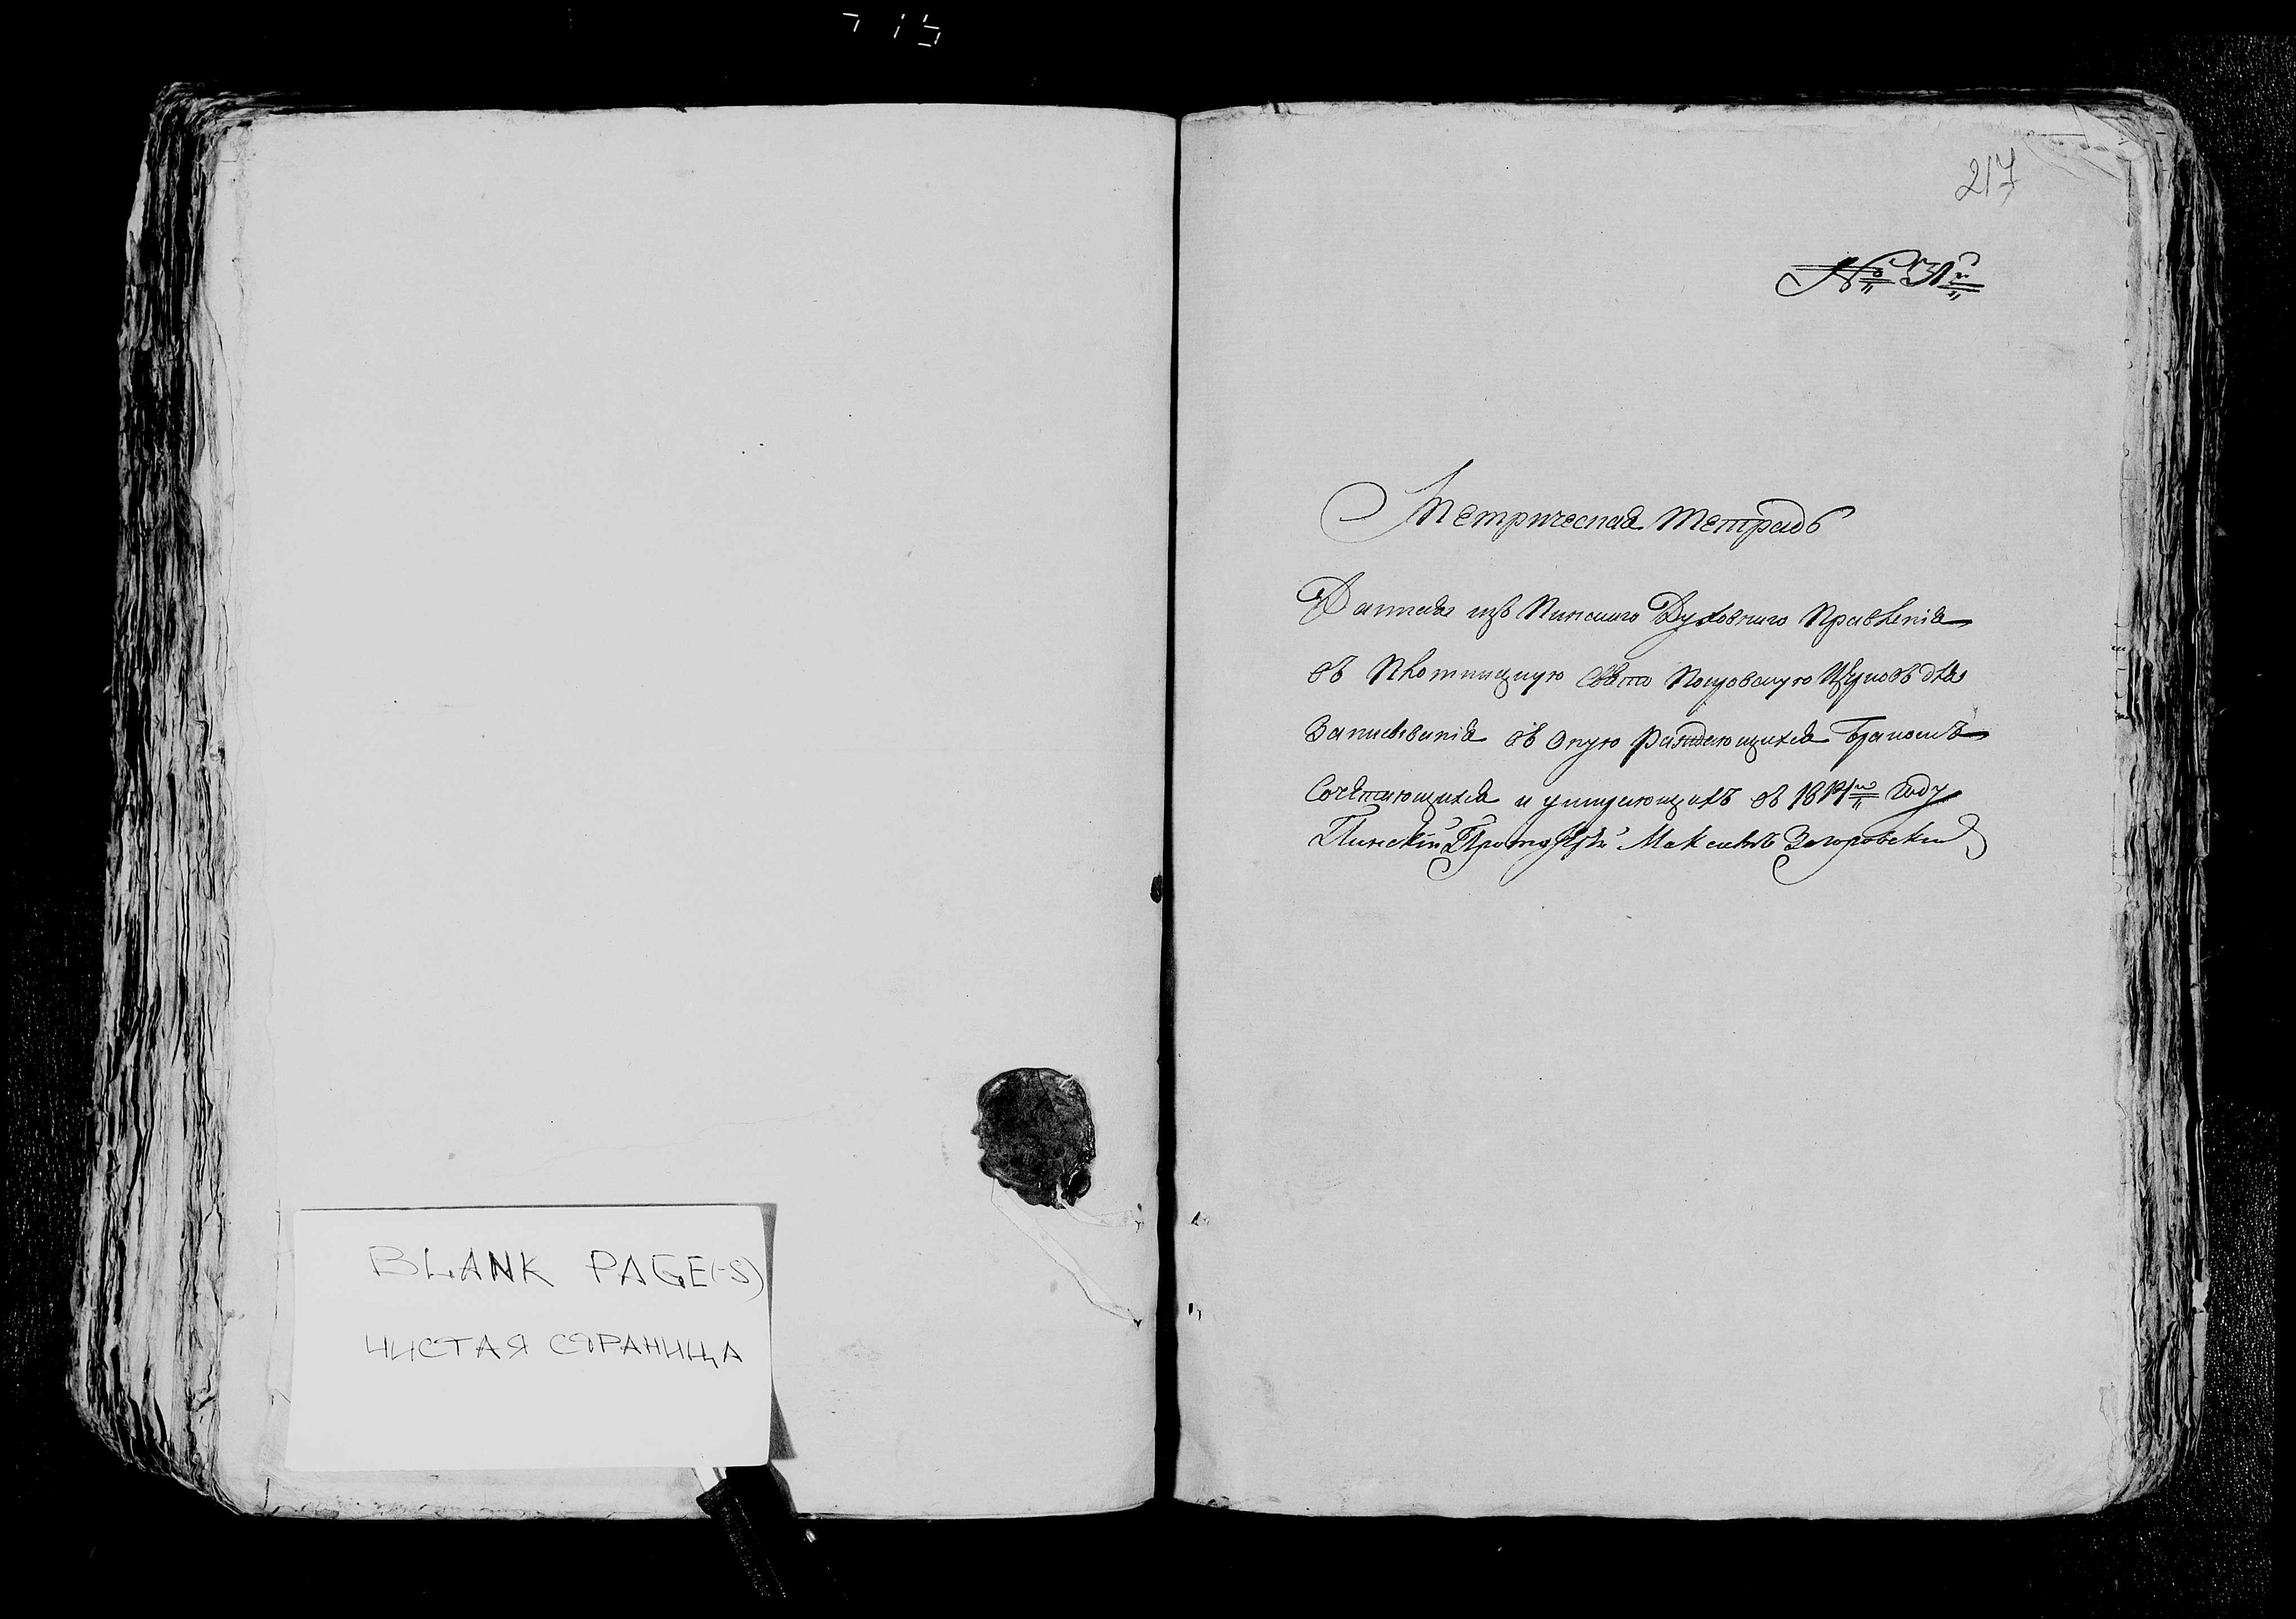 BLANK PAGE(-S)
ЧИСТАЯ СТРАНИЦА
217
№ 31й
Метрическая тетрадь
Данная изъ Пинскаго Духовнаго Правленія
въ Плотницкую Свято Покровскую Церковь для
Записыванія въ Оную Раждающихся Бракомъ
Сочетающихся и умирающихъ въ 1814м году
Пинскій Максимъ Загоровский